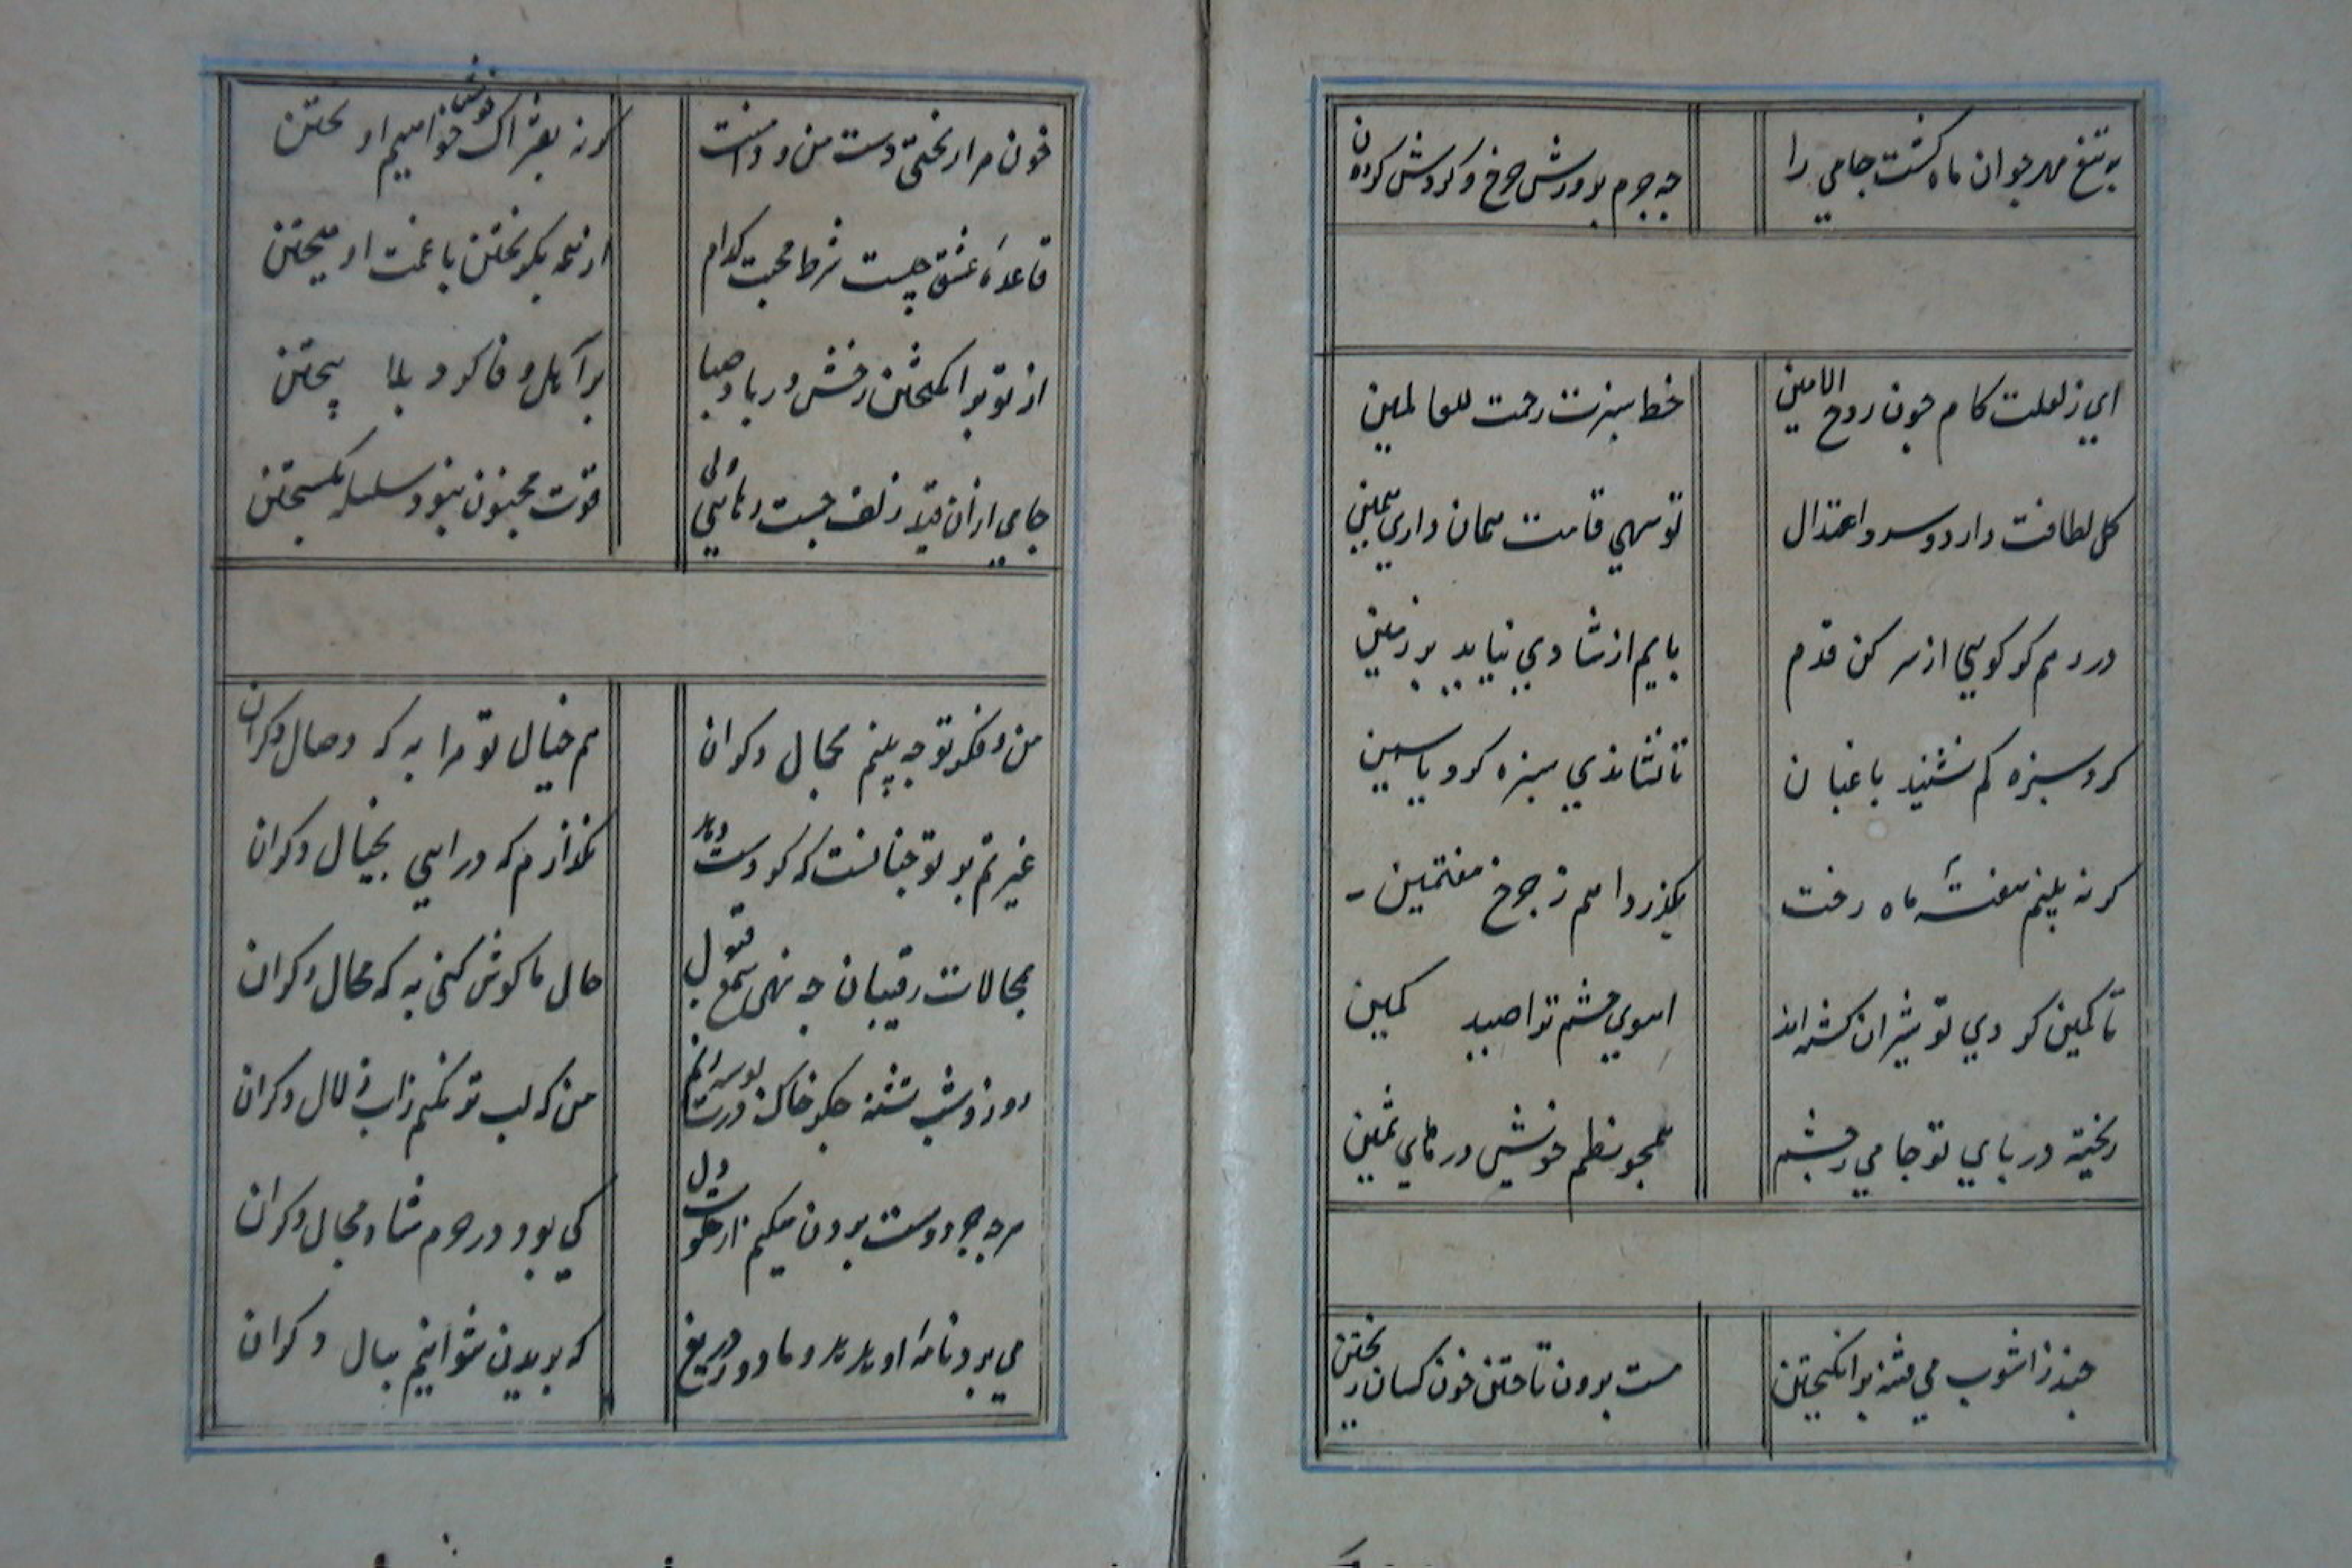 به تیغ مهر جوان ماه کشت جامی را
چه جرم بر روش چرخ و کردش کردون
ای ز لعلت کام جون روح الامین
خط سبزت رحمت للعالمین
کل لطافت دارد و سرو اعتدال
تو سهی قامت همان داری همین
در رهم کو کویی از سر کن قدم
بایم از شادی نیاید بر زمین
کرد سبزه کم نشیند باغبان
تا نشاندی سبزه کرد یاسمین
کر نه بینم هفتهٔ ماه رخت
بکذرد اهم ز جرخ هفتمین
تا کمین کردی تو شیران کشته اند
اهوی چشم ترا صید کمین
ریخته در بای تو جامی ز چشم
همجو نظم خویش درهای ثمین
جند ز اشوب می فتنه برانکیختن
مست برون تاختن خون کسان ریختن
خون مرا ریختی دست من و دامنت
کر نه بفتراک خویش خواهیم اویختن
قاعدهٔ عشق چیست شرط محبت کدام
از همه بکریختن با غمت امیختن
از تو برانکیختن رخش و ز باد صبا
بر آمل وفا کرد بلا بیختن
جامی ازان قید زلف جست رهایی ولی
قوت مجنون نبود سلسله بکسیختن
من و فکر تو جه بینم بجمال دکران
هم خیال تو مرا به که وصال دکران
غیرتم بر تو جنانست که کر دست دهد
نکذارم که درایی بخیال دکران
بمحالات رقیبان جه نهی سمع قبول
حال ما کوش کنی به که محال دکران
روز و شب تشنه جکر خاک درت بوسه زنم
من که لب تر نکنم ز اب زلال دکران
هر چه جز دوست برون میکنم از خلوت دل
کی بود در حرم شاه مجال دکران
می برد نامه او هدهد و ما دور دریغ
که بریدن نتوانیم ببال دکران